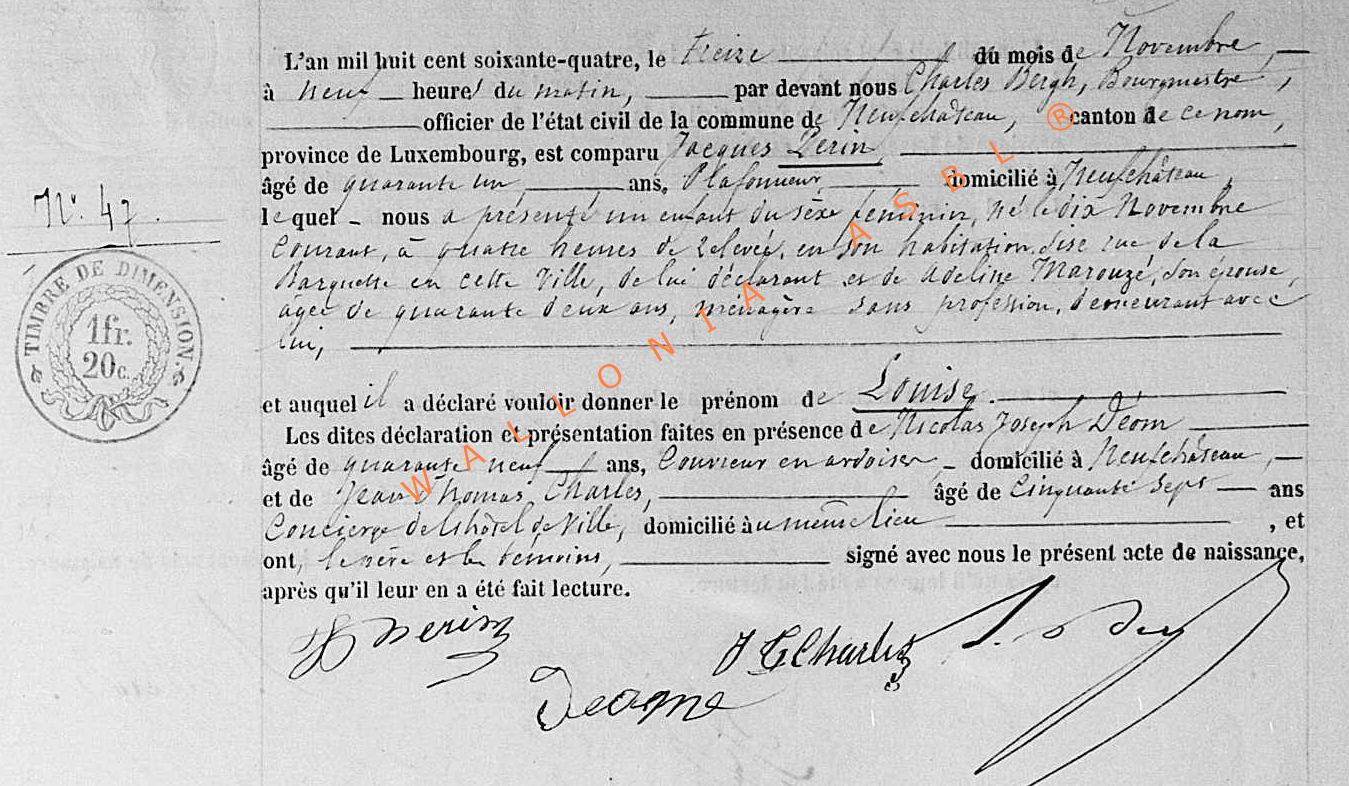 L'an mil huit cent soixante-quatre, le treize du mois de Novembre,
à neuf heures du matin, par devant nous Charles Bergh, Bourgmestre,
officier de l'état civil de la commune de Neufchâteau, canton de ce nom,
province de Luxembourg, est comparu Jacques
âgé de quarante un ans, Plafonneur, domicilié à Neufchâteau,
lequel nous a présenté un enfant du sèxe feminin, né le dix Novembre
N° 47.
courant, à quatre heures de relevée, en son habitation, sise rue de la
Barquette en cette Ville, de lui déclarant et de Adeline Marouzé, son épouse,
âgée de quarante deux ans, ménagère sans profession, demeurant avec
lui,
TIMBRE DE DIMENSION.
1fr.
20c.
et auquel il a déclaré vouloir donner le prénom de Louise.
Les dites déclaration et présentation faites en présence de Nicolas Joseph Déom
âgé de quarante neuf ans, Couvreur en ardoises, domicilié à Neufchâteau,
et de Jean Thomas Charles, âgé de Cinquante sept ans
Concierge de l'hôtel de Ville, domicilié au même lieu , et
ont, le père et les témoins, signé avec nous le présent acte de naissance,
après qu'il leur en a été fait lecture.
J Charles
WALLONIA ASBL ®